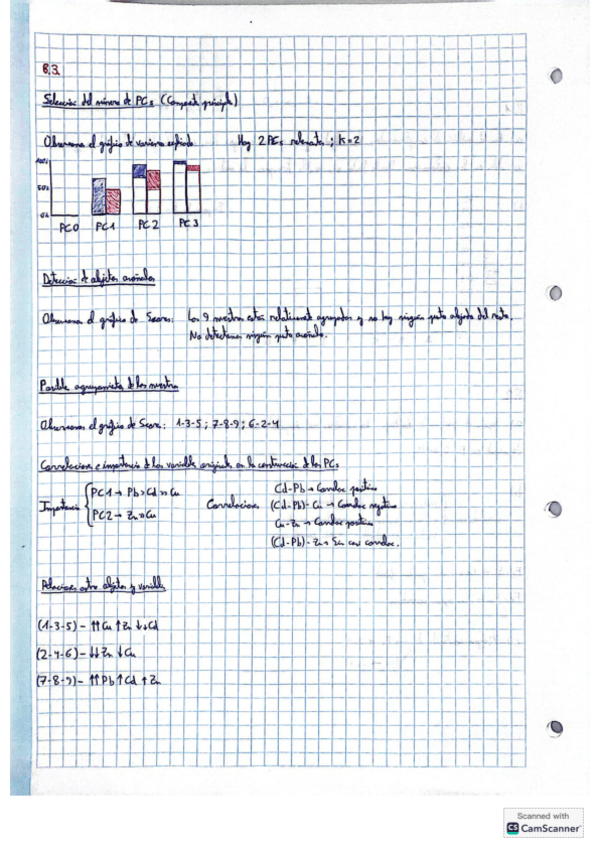 8.3.
Selección del número de PCs (Componente principle)
Observamos el gráfico de varianza explicada Hay 2 PCs relevantes ; K=2
100%
50%
0%
PC0 PC1 PC2 PC3
Detección de objetos anómalos
Observamos el gráfico de Scores: Los 9 muestras están relativamente agrupados y no hay ningún punto alejado del resto.
No detectamos ningún punto anómalo.
Posible agrupamiento de las muestras
Observamos el gráfico de Scores: 1-3-5 ; 7-8-9 ; 6-2-4
Correlaciones e importancia de las variables originales en la construcción de los PCs
Importancia { PC1 → Pb>Cd>>Cu
PC2 → Zn>>Cu
Correlaciones Cd-Pb → Correlac positiva
(Cd-Pb)-Cu → Correlac negativa
Cu-Zn → Correlac positiva
(Cd-Pb)-Zn → Sin casi correlac.
Relaciones entre objetos y variables
(1-3-5) - ↑↑Cu ↑Zn ↓↓Cd
(2-4-6) - ↓↓Zn ↓Cu
(7-8-9) - ↑↑Pb ↑Cd ↑Zn
Scanned with
CS CamScanner